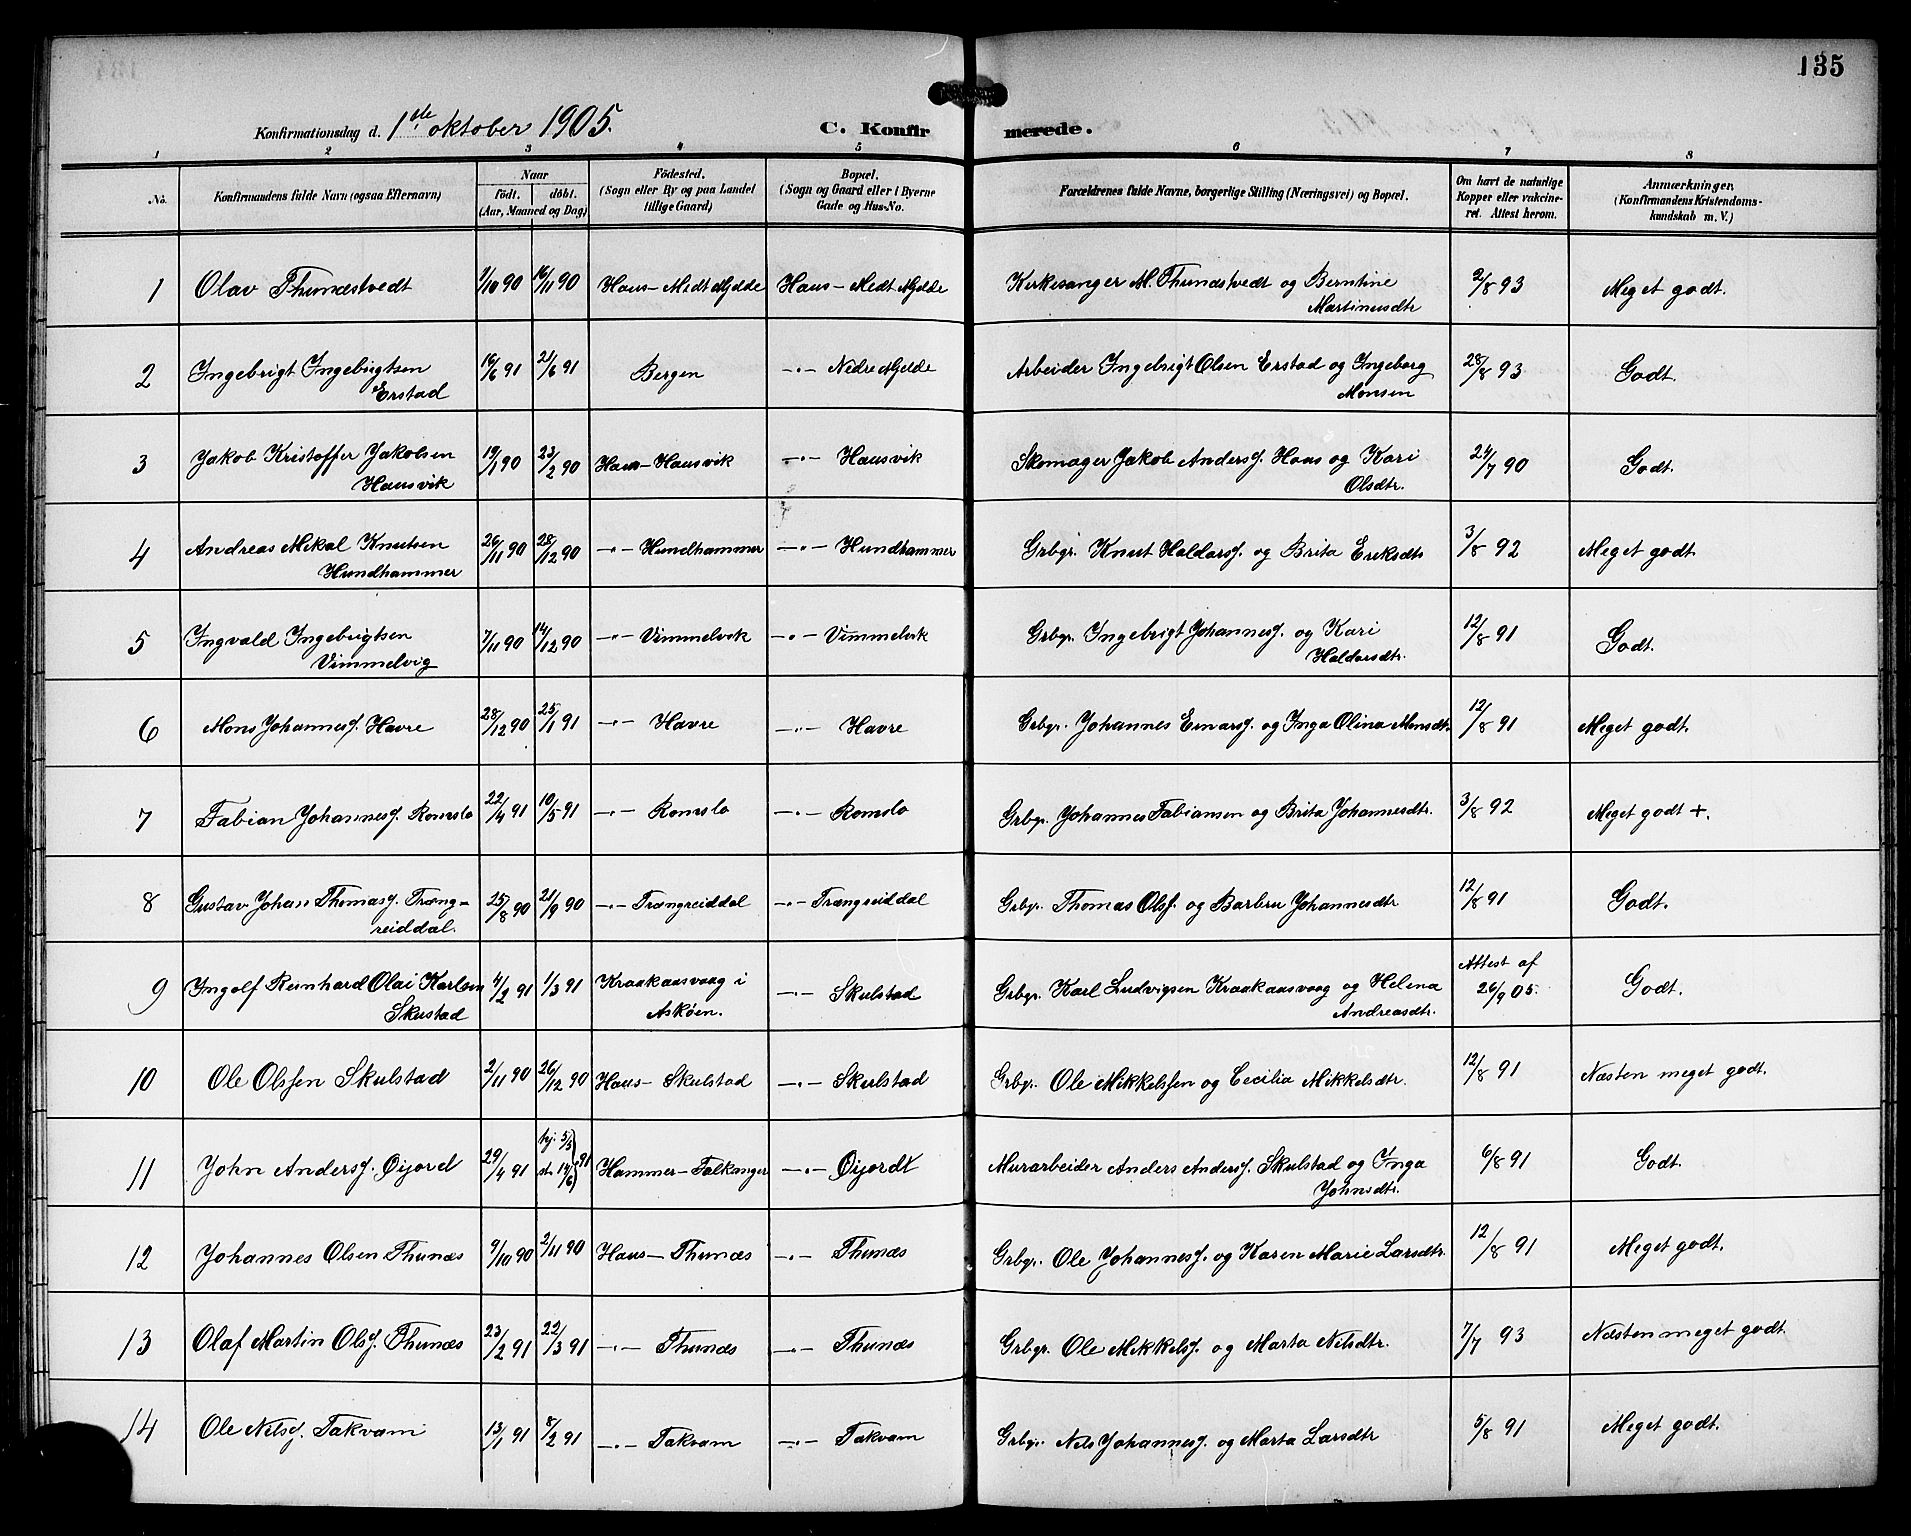 135
Konfirmationsdag d. 1ste oktober 1905. C. Konfirmerede.
1 2 3 4 5 6 7 8
No. Konfirmandens fulde Navn (ogsaa Efternavn) Naar født. døbt. (Aar, Maaned og Dag) Fødested. (Sogn eller By og paa Landet tillige Gaard) Bopæl. (Sogn og Gaard eller i Byerne Gade og Hus-No. Forældrenes fulde Navne, borgerlige Stilling (Næringsvei) og Bopæl. Om havt de naturlige Kopper eller vakcineret. Attest herom. Anmærkninger. (Konfirmandens Kristendomskundskab m. V.)
1 Olav Thunæstvedt 1/10 90 16/11 90 Haus - Medt Mjelde Haus - Medt Mjelde Kirkesanger M. Thunæstvedt og Berntine Martinusdtr 2/8 93 Meget godt.
2 Ingebrigt Ingebrigtsen Erstad 16/6 91 21/6 91 Bergen —"— Nedre Mjelde Arbeider Ingebrigt Olsen Erstad og Ingeborg Monsen 28/8 93 Godt.
3 Jakob Kristoffer Jakobsen Hausvik 19/1 90 23/2 90 Haus - Hausvik —"— Hausvik Skomager Jakob Andersf. Haus og Kari Olsdtr. 24/7 90 Godt.
4 Andreas Mikal Knutsen Hundhammer 26/11 90 28/12 90 —"— Hundhammer —"— Hundhammer Grbgr. Knut Haldorsf. og Brita Eriksdtr 3/8 92 Meget godt
5 Ingvald Ingebrigtsen Vimmelvig 7/11 90 14/12 90 —"— Vimmelvik —"— Vimmelvik Grbgr. Ingebrigt Johannesf. og Kari Haldorsdtr. 12/8 91 Godt.
6 Mons Johannesf. Havre 28/12 90 25/1 91 —"— Havre —"— Havre Grbgr. Johannes Einarsf. og Inga Olina Monsdtr. 12/8 91 Meget godt.
7 Fabian Johannesf. Romslo 22/4 91 10/5 91 —"— Romslo —"— Romslo Grbgr. Johannes Fabiansen og Brita Johannesdtr. 3/8 92 Meget godt +.
8 Gustav Johan Thomasf. Trængreiddal. 25/8 90 21/9 90 —"— Trængreiddal —"— Trængreiddal Grbgr. Thomas Olsf. og Barbru Johannesdtr 12/8 91 Godt.
9 Ingolf Reinhard Olai Karlsen Skustad 4/2 91 1/3 91 Kraakaasvaag i Askøen. —"— Skulstad Grbgr. Karl Ludvigsen Kraakaasvaag og Helena Andreasdtr. Attest af 26/9 05. Godt.
10 Ole Olssen Skulstad 2/11 90 26/12 90 Haus - Skulstad —"— Skulstad Grbgr. Ole Mikkelssen og Cecilia Mikkelsdtr. 12/8 91 Næsten meget godt.
11 John Andersf. Øijord 29/4 91 hj. 5/5 st. 14/6 91 Hammer - Falkanger —"— Øijordt Murarbeider Anders Andersf. Skulstad og Inga Johnsdtr. 6/8 91 Godt.
12 Johannes Olsen Thunæs 9/10 90 2/11 90 Haus - Thunæs —"— Thunæs Grbgr. Ole Johannesf. og Karen Marie Larsdtr. 12/8 91 Meget godt.
13 Olaf Martin Olsf. Thunæs 23/2 91 22/3 91 —"— Thunæs —"— Thunæs Grbgr. Ole Mikkelsf. og Marta Nilsdtr. 7/7 93 Næsten meget godt.
14 Ole Nilsf. Takvam 13/1 91 8/2 91 —"— Takvam —"— Takvam Grbgr. Nils Johannesf. og Marta Larsdtr 5/8 91 Meget godt.